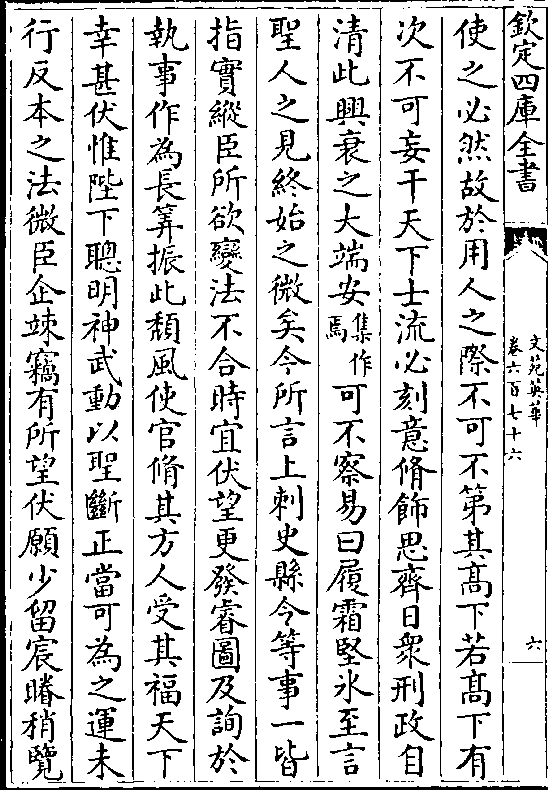 欽定四庫全書
文苑英華
卷六百七十六
六
使之必然故於用人之際不可不第其高下若高下有
次不可妄干天下士流必刻意脩飾思齊日衆刑政自
清此興衰之大端安集作焉可不察易曰履霜堅氷至言
聖人之見終始之微矣今所言上刺史縣令等事一皆
指實縱臣所欲變法不合時宜伏望更發睿圖及詢於
執事作為長筭振此頽風使官脩其方人受其福天下
幸甚伏惟陛下聰明神武動以聖斷正當可為之運未
行反本之法微臣企竦竊有所望伏願少留宸睠稍覽